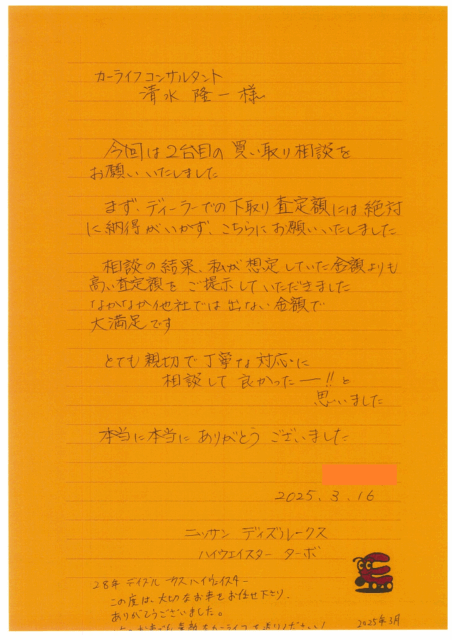 カーライフコンサルタント
清水 隆一 様
今回は2台目の買い取り相談を
お願いいたしました
まず、ディーラーでの下取り査定額には絶対
に納得がいかず、こちらにお願いいたしました
相談の結果、私が想定していた金額よりも
高い査定額をご提示していただきました
なかなか他社では出ない金額で
大満足です
とても親切で丁寧な対応に
相談して良かったー!!と
思いました
本当に本当にありがとうございました
2025.3.16
ニッサン ディズルークス
ハイウエイスター ターボ
28年 デイズルークスハイウェイスター
この度は、大切なお車をお任せ下さり、
ありがとうございました。
2025年3月